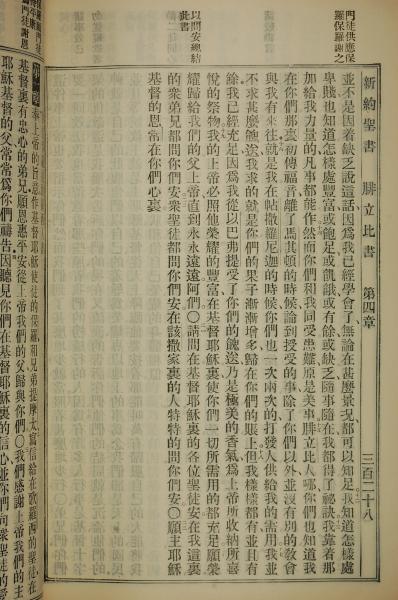 新約聖書　腓立比書　第四章　三百二十八
門徒供應保
羅保羅謝之
以問安總結
此書
並不是因着缺乏說這話因爲我已經學會了無論在甚麼景況都可以知足我知道怎樣處
卑賤也知道怎樣處豐富或飽足或飢餓或有餘或缺乏隨事隨在我都得了祕訣我靠着那
加給我力量的凡事都能作然而你們和我同受患難原是美事腓立比人哪你們也知道我
在你們那裏初傳福音離了馬其頓的時候論到授受的事除了你們以外並沒有別的敎會
與我有來往就是我在帖撒羅尼迦的時候你們也一次兩次的打發人供給我的需用我並
不求甚麼餽送我求的就是你們的果子漸漸增多歸在你們的賬上但我樣樣都有並且有
餘我已經充足因爲我從以巴弗提受了你們的餽送乃是極美的香氣爲上帝所收納所喜
悅的祭物我的上帝必照他榮耀的豐富在基督耶穌裏使你們一切所需用的都充足願榮
耀歸給我們的父上帝直到永永遠遠阿們〇請問在基督耶穌裏的各位聖徒安在我這裏
的衆弟兄都問你們安衆聖徒都問你們安在該撒家裏的人特特的問你們安〇願主耶穌
基督的恩常在你們心裏
奉上帝的旨意作基督耶穌使徒的保羅和兄弟提摩太寫信給在歌羅西的聖徒在
基督裏有忠心的弟兄願恩惠平安從上帝我們的父歸與你們〇我們感謝上帝我們的主
耶穌基督的父常常爲你們禱告因聽見你們在基督耶穌裏的信心並你們向衆聖徒的愛